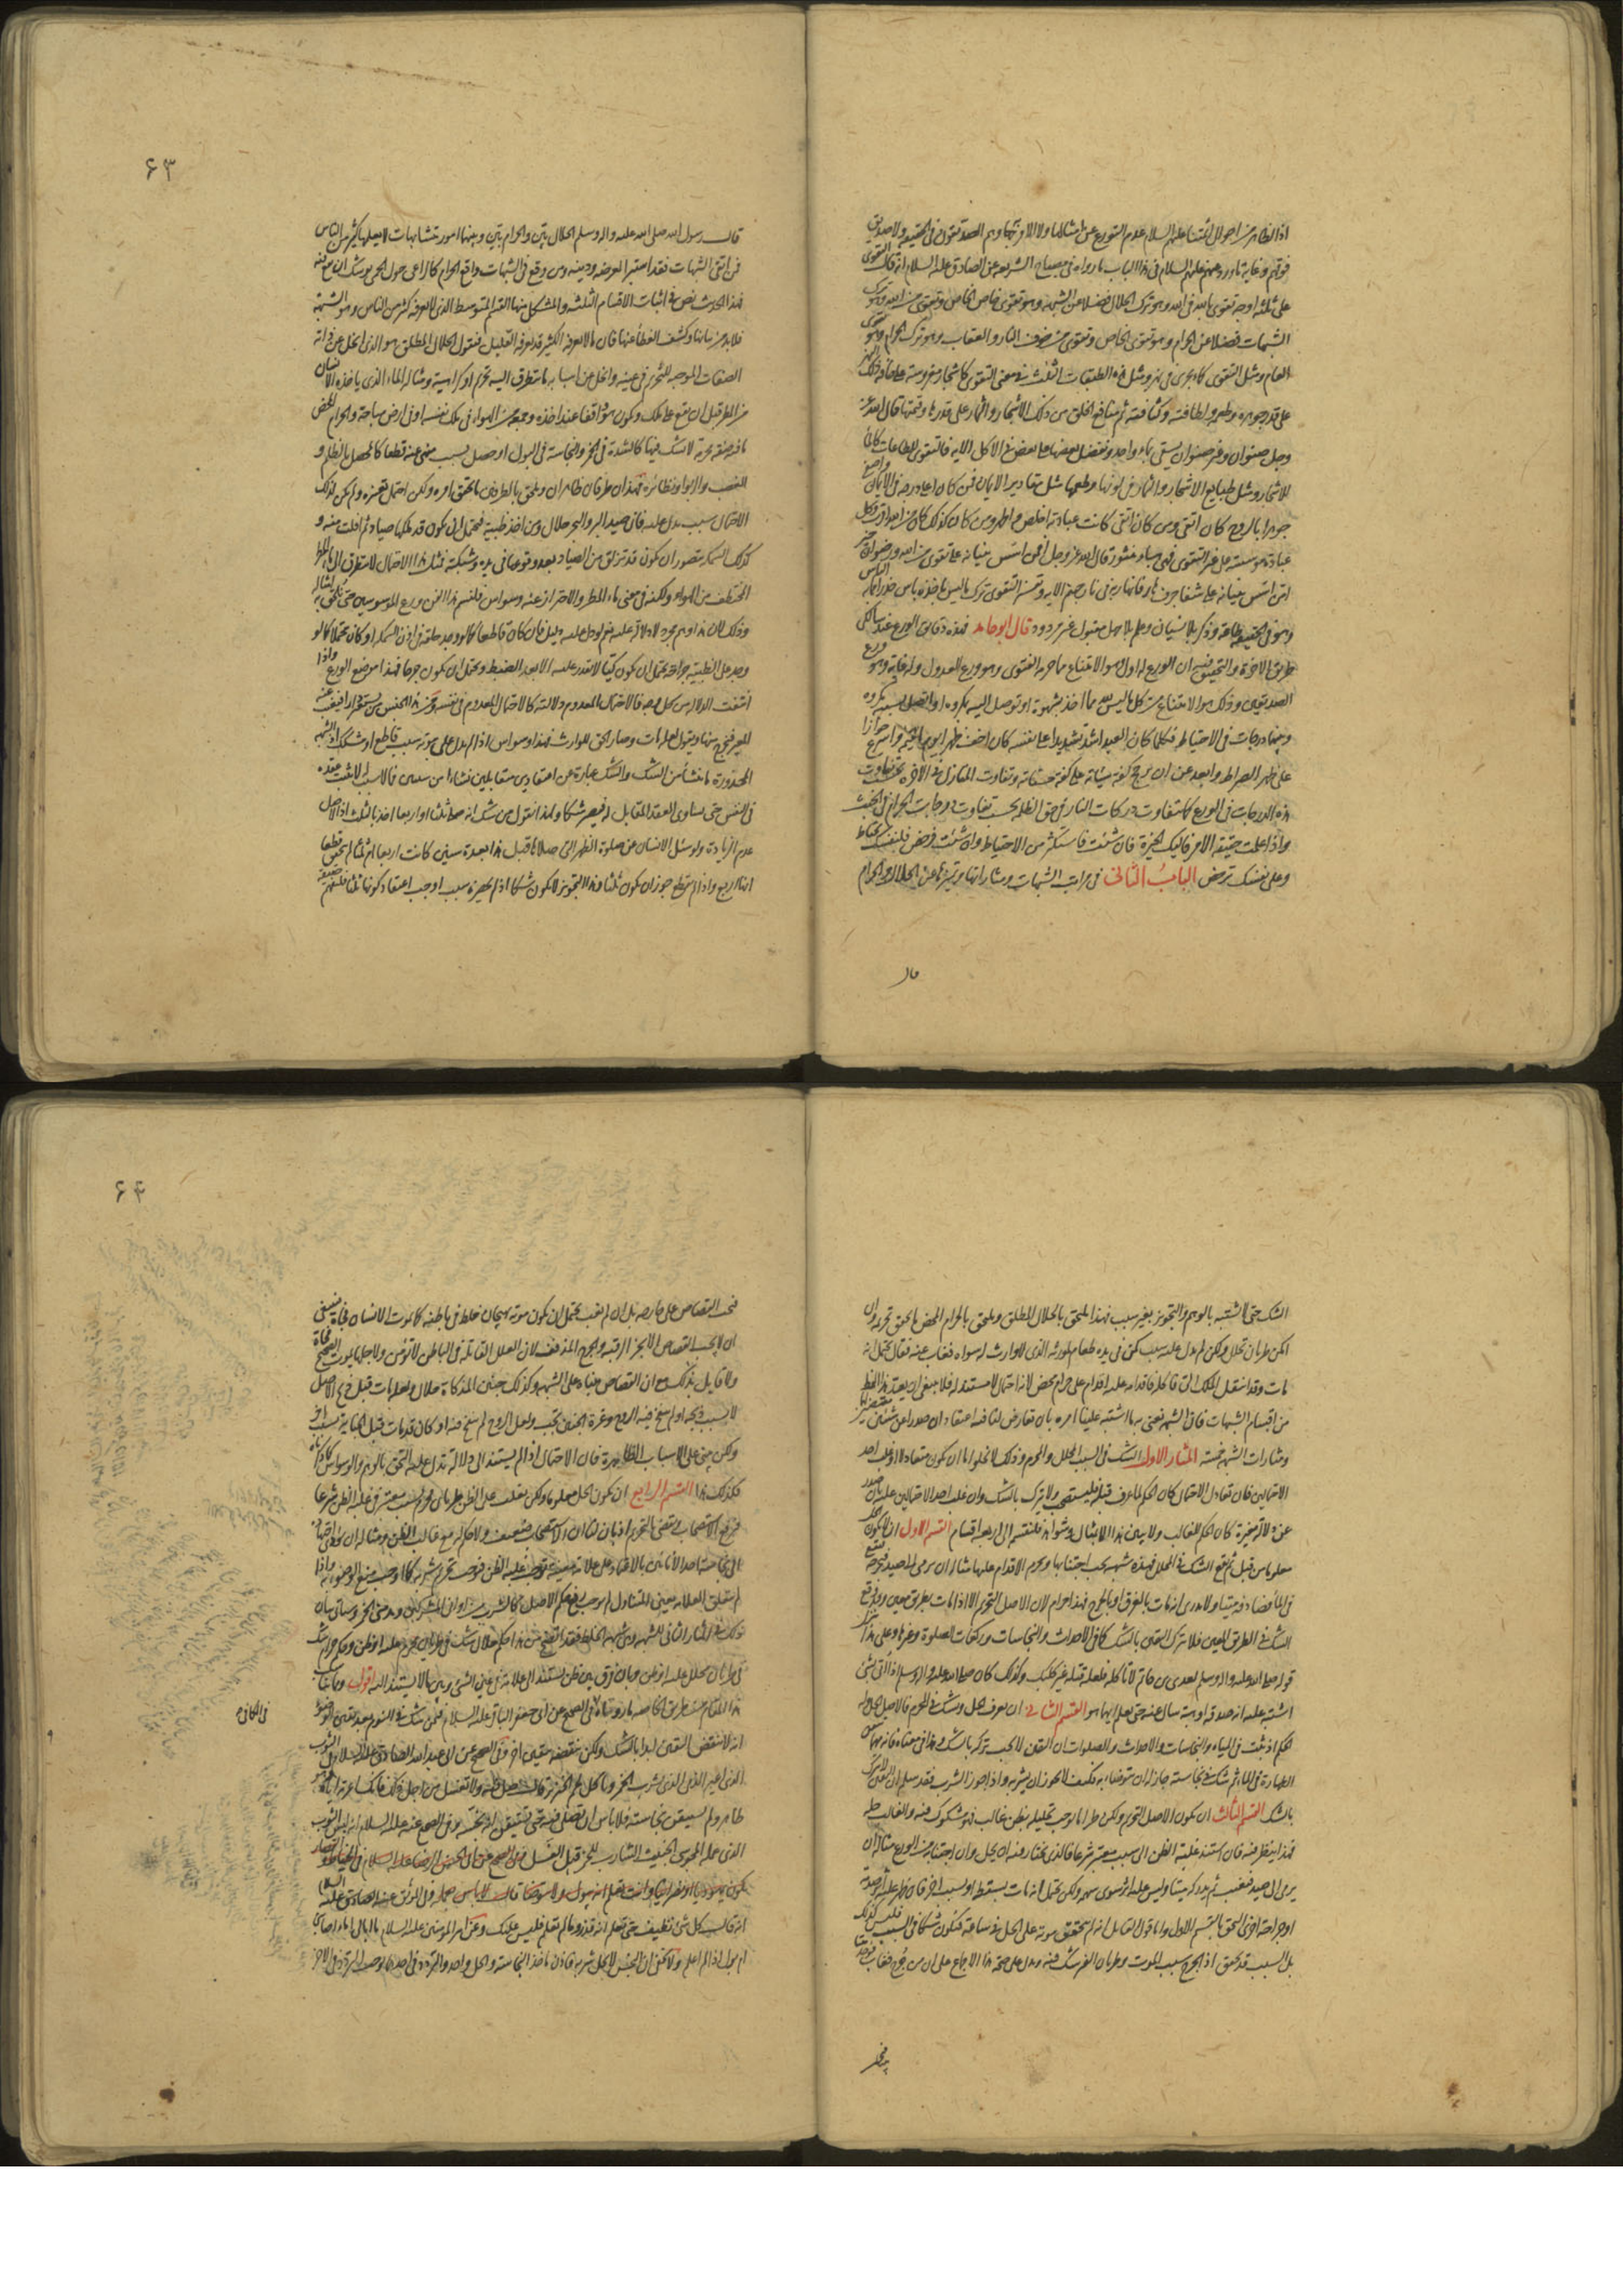 اذا الظاهر من احوال ائمتنا عليهم السلام عدم التورع عن امثالها ولا
فوقهم وغاية ما ورد عنهم عليهم السلام في هذا الباب ما رواه في مصباح الشريعة عن الصادق عليه السلام انه قال التقوى
على ثلثة اوجه تقوى بالله في الله وهو ترك الحلال فضلا عن الشبهة وهو تقوى خاص الخاص وتقوى من الله وهو ترك
الشبهات فضلا عن الحرام وهو تقوى الخاص وتقوى من خوف النار والعقاب وهو ترك الحرام وهو تقوى
العام ومثل التقوى كماء يجري في نهر ومثل هذه الطبقات الثلث في معنى التقوى كاشجار مغروسة على حافة ذلك النهر
على قدر جوهره وطعمه ولطافته وكثافته ثم منافع الخلق من ذلك الاشجار والثمار على قدرها وقيمتها قال الله عز
وجل صنوان وغير صنوان يسقى بماء واحد ونفضل بعضها على بعض في الاكل الاية فالتقوى للطاعات كالماء
للاشجار ومثل طبايع الاشجار والثمار في لونها وطعمها مثل مقادير الايمان فمن كان اعلى درجة في الايمان واصفى
جوهرا بالروح كان اتقى ومن كان اتقى كانت عبادته اخلص واطهر ومن كان كذلك كان من الله اقرب وكل
عبادة مؤسسة على غير التقوى فهي هباء منثور قال الله عز وجل افمن اسس بنيانه على تقوى من الله ورضوان خير
ام من اسس بنيانه على شفا جرف هار فانهار به في نار جهنم الاية وتفسير التقوى ترك ما ليس باخذه باس حذرا مما به الباس
وهو في الحقيقة طاعة وذكر بلا نسيان وعلم بلا جهل مقبول غير مردود قال ابو حامد فهذه دقايق الورع عند سالكي
طريق الاخرة والتحقيق فيه ان الورع له اول وهو الامتناع مما حرمه الفتوى وهو ورع العدول وله غاية وهو ورع
الصديقين وذلك هو الامتناع من كل ما ليس لله مما اخذ بشهوة او توصل اليه بمكروه او اتصل بسببه مكروه
وبينهما درجات في الاحتياط فكلما كان العبد اشد تشديدا على نفسه كان اخف ظهرا يوم القيمة واسرع جوازا
على الصراط وابعد عن ان يرجح كفة سيئاته على كفة حسناته وتفاوت المنازل في الاخرة بحسب تفاوت
هذه الدرجات في الورع كما تتفاوت دركات النار في حق الظلمة بحسب تفاوت درجات الحرام في الخبث
واذا علمت حقيقة الامر فاليك الخيرة فان شئت فاستكثر من الاحتياط وان شئت فرخص فلنفسك تحتاط
وعلى نفسك ترخص الباب الثاني في مراتب الشبهات ومثاراتها وتمييزها عن الحلال والحرام
قال
۶۳
قال رسول الله صلى الله عليه واله وسلم الحلال بين والحرام بين وبينهما امور متشابهات لا يعلمها كثير من الناس
فمن اتقى الشبهات فقد استبرأ لعرضه ودينه ومن وقع في الشبهات واقع الحرام كالراعي حول الحمى يوشك ان يقع فيه
فهذا الحديث نص في اثبات الاقسام الثلثة والمشكل منها القسم المتوسط الذي لا يعرفه كثير من الناس وهو الشبهة
فلا بد من بيانها وكشف الغطاء عنها فان ما لا يعرفه الكثير قد يعرفه القليل فنقول الحلال المطلق هو الذي انحل عن ذاته
الصفات الموجبة للتحريم في عينه وانحل عن اسبابه ما تطرق اليه تحريم او كراهية ومثاله الماء الذي ياخذه الانسان
من المطر قبل ان يقع على ملك ويكون هو واقفا عند اخذه وجمعه من الهواء في ملك نفسه او في ارض مباحة والحرام المحض
ما فيه صفة محرمة لا يشك فيها كالشدة في الخمر والنجاسة في البول او حصل بسبب منهي عنه قطعا كالمحصل بالظلم و
الغصب والربوا ونظائره فهذان طرفان ظاهران ويلتحق بالطرفين ما تحقق امره ولكن احتمل تغيره ولم يكن لذلك
الاحتمال سبب يدل عليه فان صيد البر والبحر حلال ومن اخذ ظبية فيحتمل ان يكون قد ملكها صياد ثم افلتت منه و
كذلك السمك يتصور ان يكون قد تزلق من الصياد بعد وقوعها في يده وشبكته فمثل هذا الاحتمال لا يتطرق الى ماء المطر
المختطف من الهواء ولكنه في معنى ماء المطر والاحتراز عنه وسواس فلنسم هذا الفن ورع الموسوسين حتى يلتحق به امثاله
وذلك لان هذا وهم مجرد لا دلالة عليه نعم لو دل عليه دليل فان كان قاطعا كما لو وجد حلقة في اذن السمكة او كان محتملا كما لو
وجد على الظبية جراحة يحتمل ان يكون كيا لا يقدر عليه الا بعد الضبط ويحتمل ان يكون جرحا فهذا موضع الورع واذا
انتفت الدلالة من كل وجه فالاحتمال المعدوم دلالته كالاحتمال المعدوم في نفسه ومن هذا الجنس من يستعير دارا فيغيب عنه
المعير فيخرج منها ويقول لعله مات وصار الحق للوارث فهذا وسواس اذا لم يدل على موته سبب قاطع او مشكك اذ الشبهة
المحذورة ما تنشأ من الشك والشك عبارة عن اعتقادين متقابلين نشئا من سببين فما لا سبب له لا يثبت عقده
في النفس حتى يساوي العقد المقابل له فيصير شكا ولهذا نقول من شك انه صلى ثلثا او اربعا اخذ بالثلث اذ الاصل
عدم الزيادة ولو سئل الانسان عن صلوة الظهر التي صلاها قبل هذا بعدة سنين كانت اربعا ام ثلثا لم يتحقق قطعا
انها اربع واذا لم يقطع جوز ان يكون ثلثا فهذا التجويز لا يكون شكا اذا لم يحضره سبب اوجب اعتقاد كونها ثلثا فلتفهم حقيقة
الشك حتى لا يشتبه بالوهم والتجويز بغير سبب فهذا ملتحق بالحلال المطلق ويلتحق بالحرام المحض ما تحقق تحريمه وان
امكن طريان محلل ولكن لم يدل عليه سبب كمن في يده طعام لمورثه الذي لا وارث له سواه فغاب عنه فقال يحتمل انه
مات وقد انتقل الملك الي فاكله فاقدامه عليه اقدام على حرام محض لانه احتمال لا مستند له فلا ينبغي ان يعد هذا النمط
من اقسام الشبهات فان الشبهة نعني بها ما اشتبه علينا امره بان تعارض لنا فيه اعتقادان صدرا عن سببين مقتضيين لهما
ومثارات الشبهة خمسة المثار الاول الشك في السبب المحلل والمحرم وذلك لا يخلو اما ان يكون متعادلا او غلب احد
الاحتمالين فان تعادل الاحتمالان كان الحكم لما عرف قبله فيستصحب ولا يترك بالشك وان غلب احد الاحتمالين عليه بان صدر
عن دلالة معتبرة كان الحكم للغالب ولا يبين هذا الا بالامثال والشواهد فلنقسمه الى اربعة اقسام القسم الاول ان يكون التحريم
معلوما من قبل ثم يقع الشك في المحلل فهذه شبهة يجب اجتنابها ويحرم الاقدام عليها مثاله ان يرمي الى صيد فيجرحه فيقع
في الماء فيصادفه ميتا ولا يدري انه مات بالغرق او بالجرح فهذا حرام لان الاصل التحريم الا اذا مات بطريق معين وقد وقع
الشك في الطريق المعين فلا يترك اليقين بالشك كما في الاحداث والنجاسات وركعات الصلوة وغيرها وعلى هذا
قوله صلى الله عليه واله وسلم لعدي بن حاتم لا تاكله فلعله قتله غير كلبك وكذلك كان صلى الله عليه واله وسلم اذا اتي بشئ
اشتبه عليه انه صدقة او هبة سال عنه حتى يعلم ايهما هو القسم الثاني ان يعرف الحل ويشك في المحرم فالاصل الحل وله
الحكم اذ ثبت في المياه والنجاسات والاحداث والصلوات ان اليقين لا يجب تركه بالشك
الطهارة في الماء ثم شك في نجاسته جاز له ان يتوضأ به فكيف لا يجوز ان يشربه واذا جوز الشرب فقد سلم ان اليقين لا يترك
بالشك القسم الثالث ان يكون الاصل التحريم ولكن طرأ ما يوجب تحليله بظن غالب فهو مشكوك فيه والغالب حله
فهذا ينظر فيه فان استند غلبة الظن الى سبب معتبر شرعا فالذي نختار فيه انه يحل وان اجتنابه من الورع مثاله ان
يرمي الى صيد فيغيب ثم يدركه ميتا وليس عليه اثر سوى سهمه ولكن يحتمل انه مات بسقطة او بسبب اخر فان ظهر عليه اثر صدمة
او جراحة اخرى التحق بالقسم الاول واما قول القائل انه لم يتحقق موته على الحل في ساعة فيكون شكا في السبب فليس كذلك
بل السبب قد تحقق اذ الجرح سبب الموت وطريان الغير شك فيه ويدل على صحة هذا الاجماع على ان من جرح فغاب فوجد ميتا
فيجب
۶۴
فيجب القصاص على جارحه بل ان لم يغب يحتمل ان يكون موته بهيجان خلط في باطنه كما يموت الانسان فجاة فينبغي
ان لا يجب القصاص الا بجز الرقبة والجرح المذفف لان العلل القاتلة في الباطن لا تؤمن ولاجلها يموت الصحيح فجاة
ولا قايل بذلك مع ان القصاص مبناه على الشبهة وكذلك جنين المذكاة حلال ولعله مات قبل ذبح الاصل
لا بسبب ذبحه او لم ينفخ فيه الروح وغرة الجنين تجب ولعل الروح لم ينفخ فيه او كان قد مات قبل الجناية بسبب اخر
ولكن يبنى على الاسباب الظاهرة فان الاحتمال اذا لم يستند الى دلالة تدل عليه التحق بالوهم والوسواس كما ذكرناه
فكذلك هذا القسم الرابع ان يكون الحل معلوما ولكن يغلب على الظن طريان محرم بسبب معتبر في غلبة الظن شرعا
فيرفع الاستصحاب ويقضى بالتحريم اذ بان لنا ان الاستصحاب ضعيف ولا حكم له مع غالب الظن ومثاله ان يؤدي اجتهاده
الى نجاسة احد الانائين بالاعتماد على علامة معينة توجب غلبة الظن فتوجب تحريم شربه كما اوجبت منع الوضوء به
لم تتعلق العلامة بعين المتناول لم يوجب رفع حكم الاصل
في المثار الثاني للشبهة وهي شبهة الخلط فقد اتضح من هذا حكم حلال شك في طريان محرم عليه او ظن وحكم حرام شك
في طريان محلل عليه او ظن وبان الفرق بين ظن يستند الى علامة في عين الشئ وبين ما لا يستند اليه اقول
في الكافي
هذا المقام من طريق الخاصة ما رويناه في الصحيح عن ابي جعفر الباقر عليه السلام فيمن شك في النوم بعد يقين الوضوء
انه لا ينقض اليقين ابدا بالشك ولكن ينقضه بيقين اخر وفي الصحيح عن ابي عبد الله الصادق عليه السلام في الثوب
الذي اعير الذمي الذي يشرب الخمر وياكل لحم الخنزير قال صل فيه ولا تغسله من اجل ذلك فانك اعرته اياه وهو
طاهر ولم تستيقن نجاسته فلا باس ان تصلي فيه حتى تستيقن انه نجسه وفي الصحيح عنه عليه السلام
الذي عمله المجوسي الخبيث الشارب للخمر قبل الغسل وفي الصحيح عن ابي الحسن الرضا عليه السلام في الخياط او القصار
يكون يهوديا او نصرانيا وانت تعلم انه يبول ولا يتوضأ قال لا باس وفي الموثق عن الصادق عليه السلام
انه قال كل شئ نظيف حتى تعلم انه قذر وما لم تعلم فليس عليك وعن امير المؤمنين عليه السلام ما ابالي ابول اصابني
ام ماء اذا لم اعلم